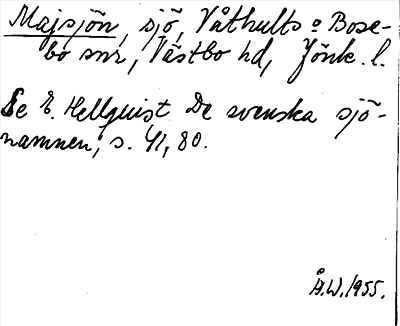 Majsjön, sjö, Våthults o Bose-
bo snr, Västbo hd, Jönk. l.
Se E. Hellquist De svenska sjö-
namnen, s. 41, 80.
Å.W. 1955.